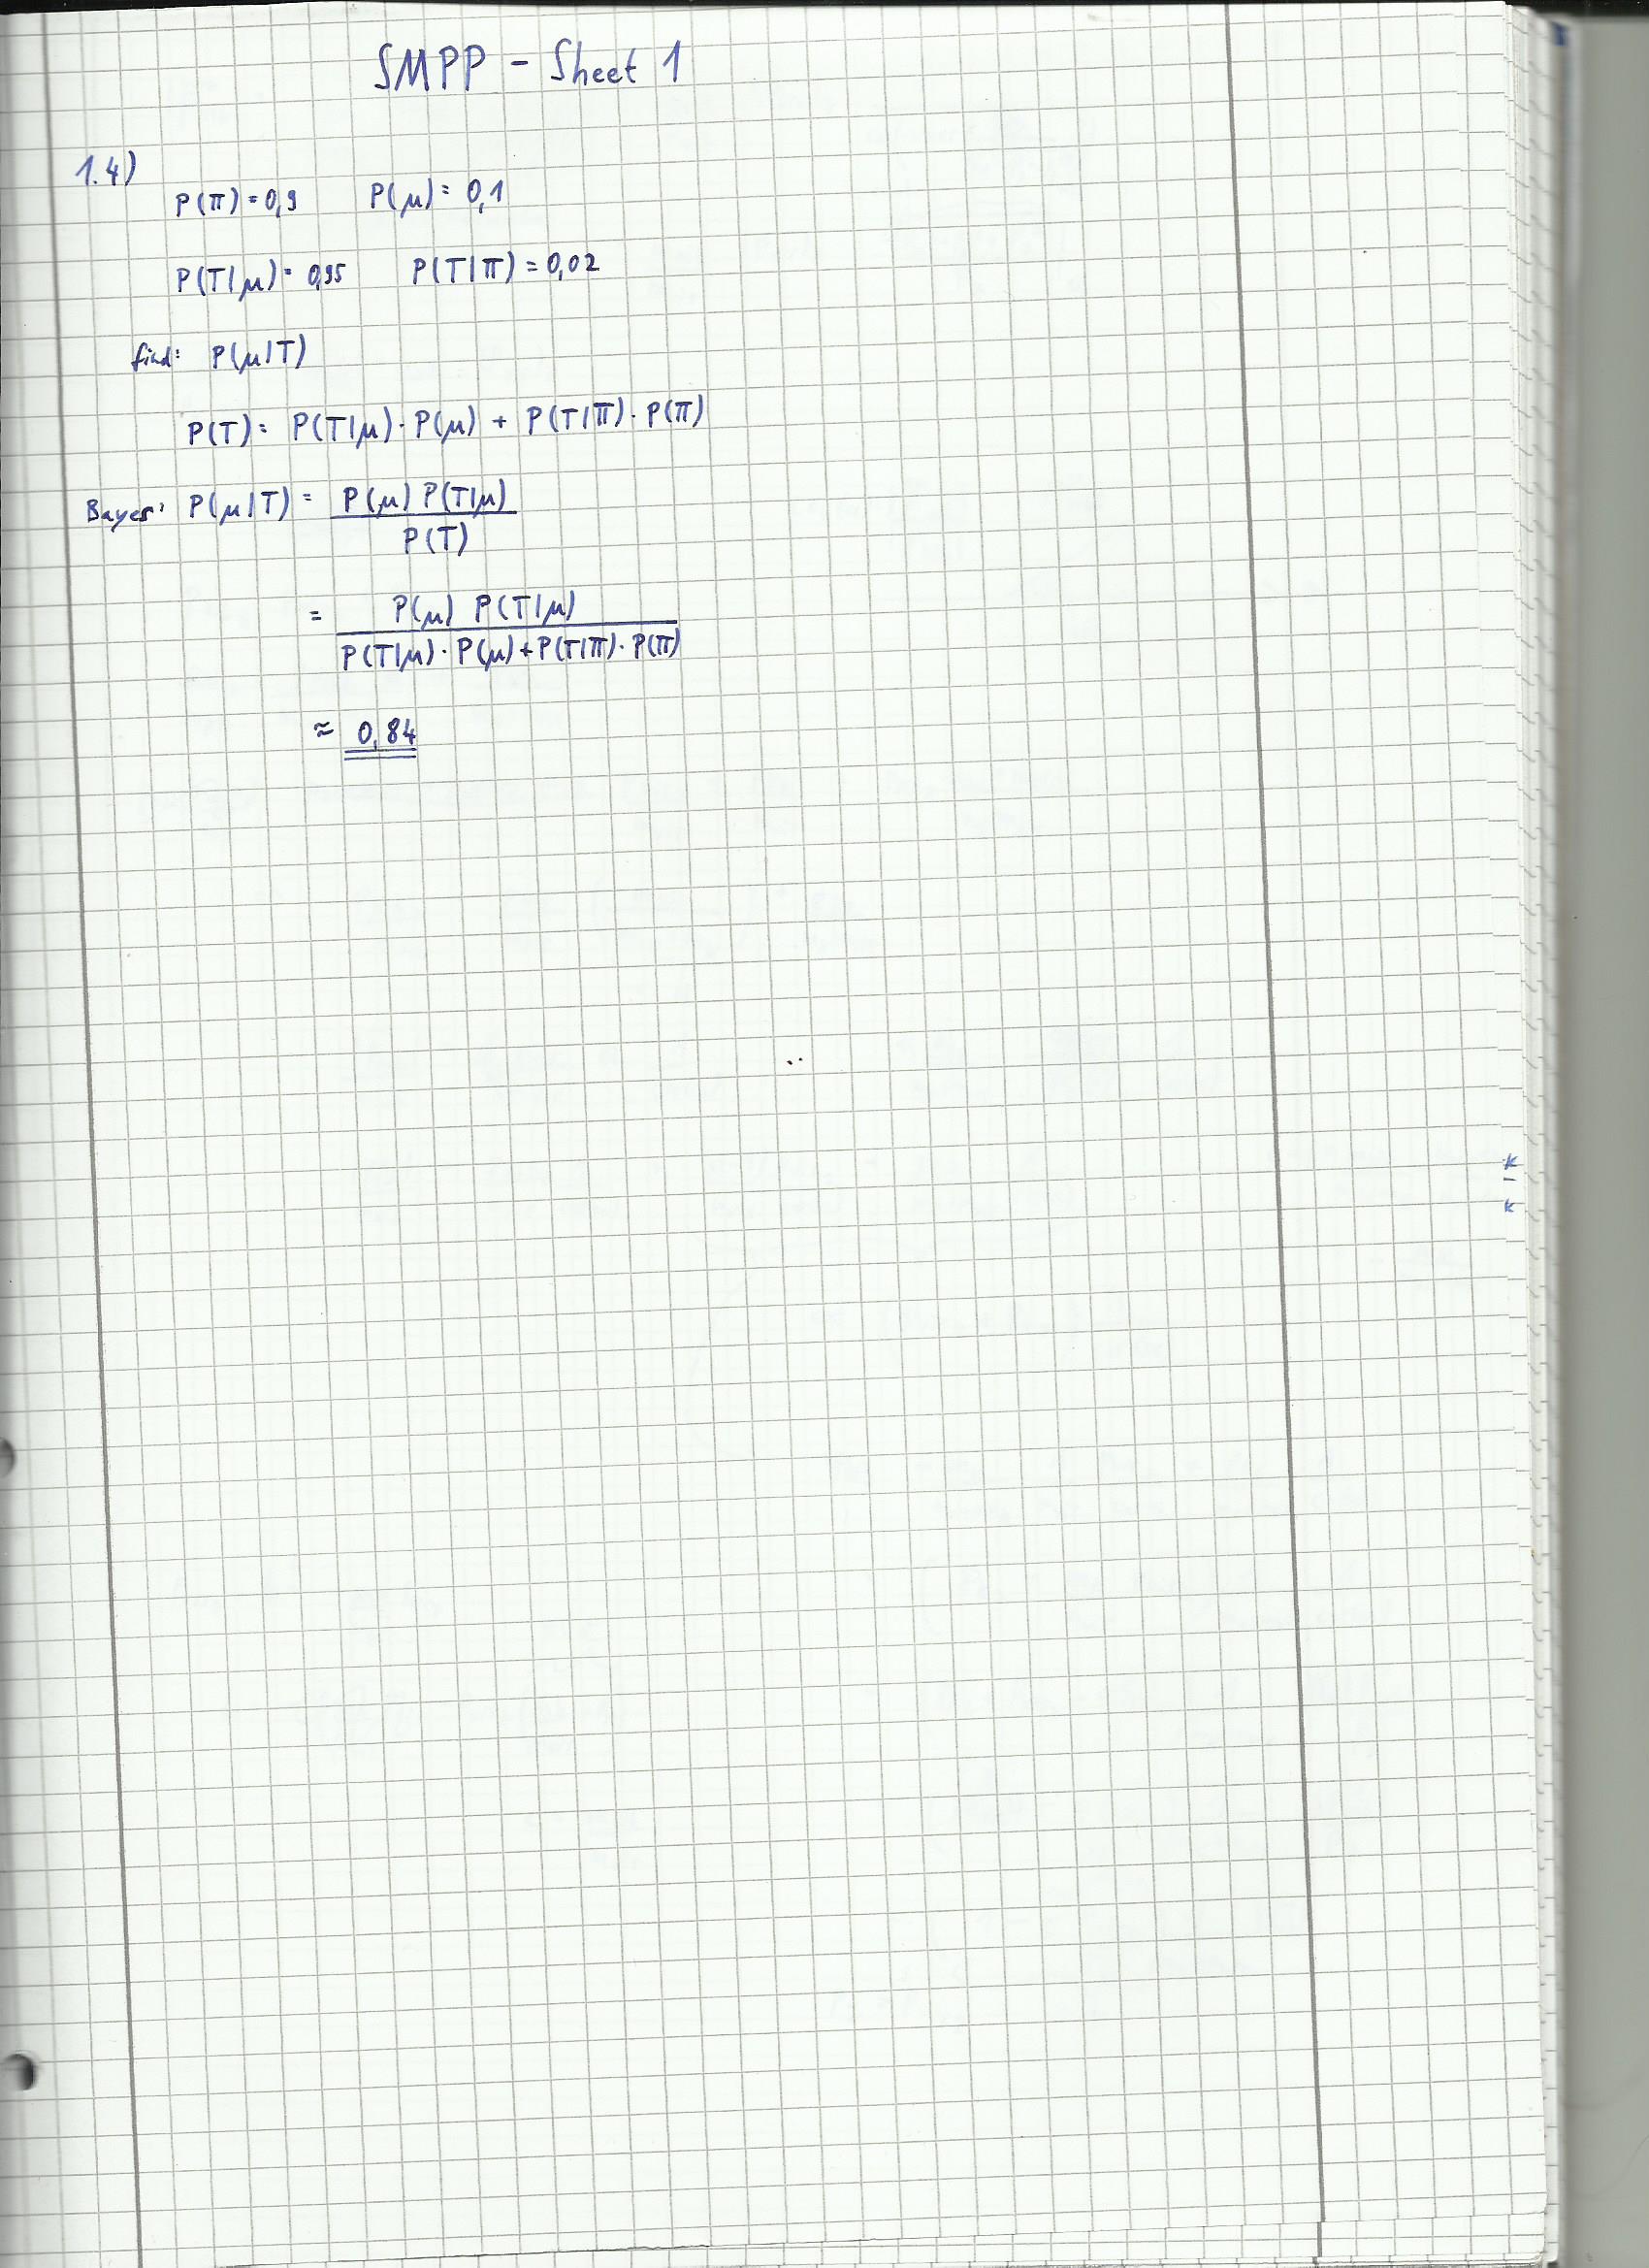 SMPP - Sheet 1
1.4)
P(π) = 0,9 P(μ) = 0,1
P(T|μ) = 0,95 P(T|π) = 0,02
find: P(μ|T)
P(T) = P(T|μ) · P(μ) + P(T|π) · P(π)
Bayes: P(μ|T) = P(μ) P(T|μ)
P(T)
= P(μ) P(T|μ)
P(T|μ) · P(μ) + P(T|π) · P(π)
≈ 0,84